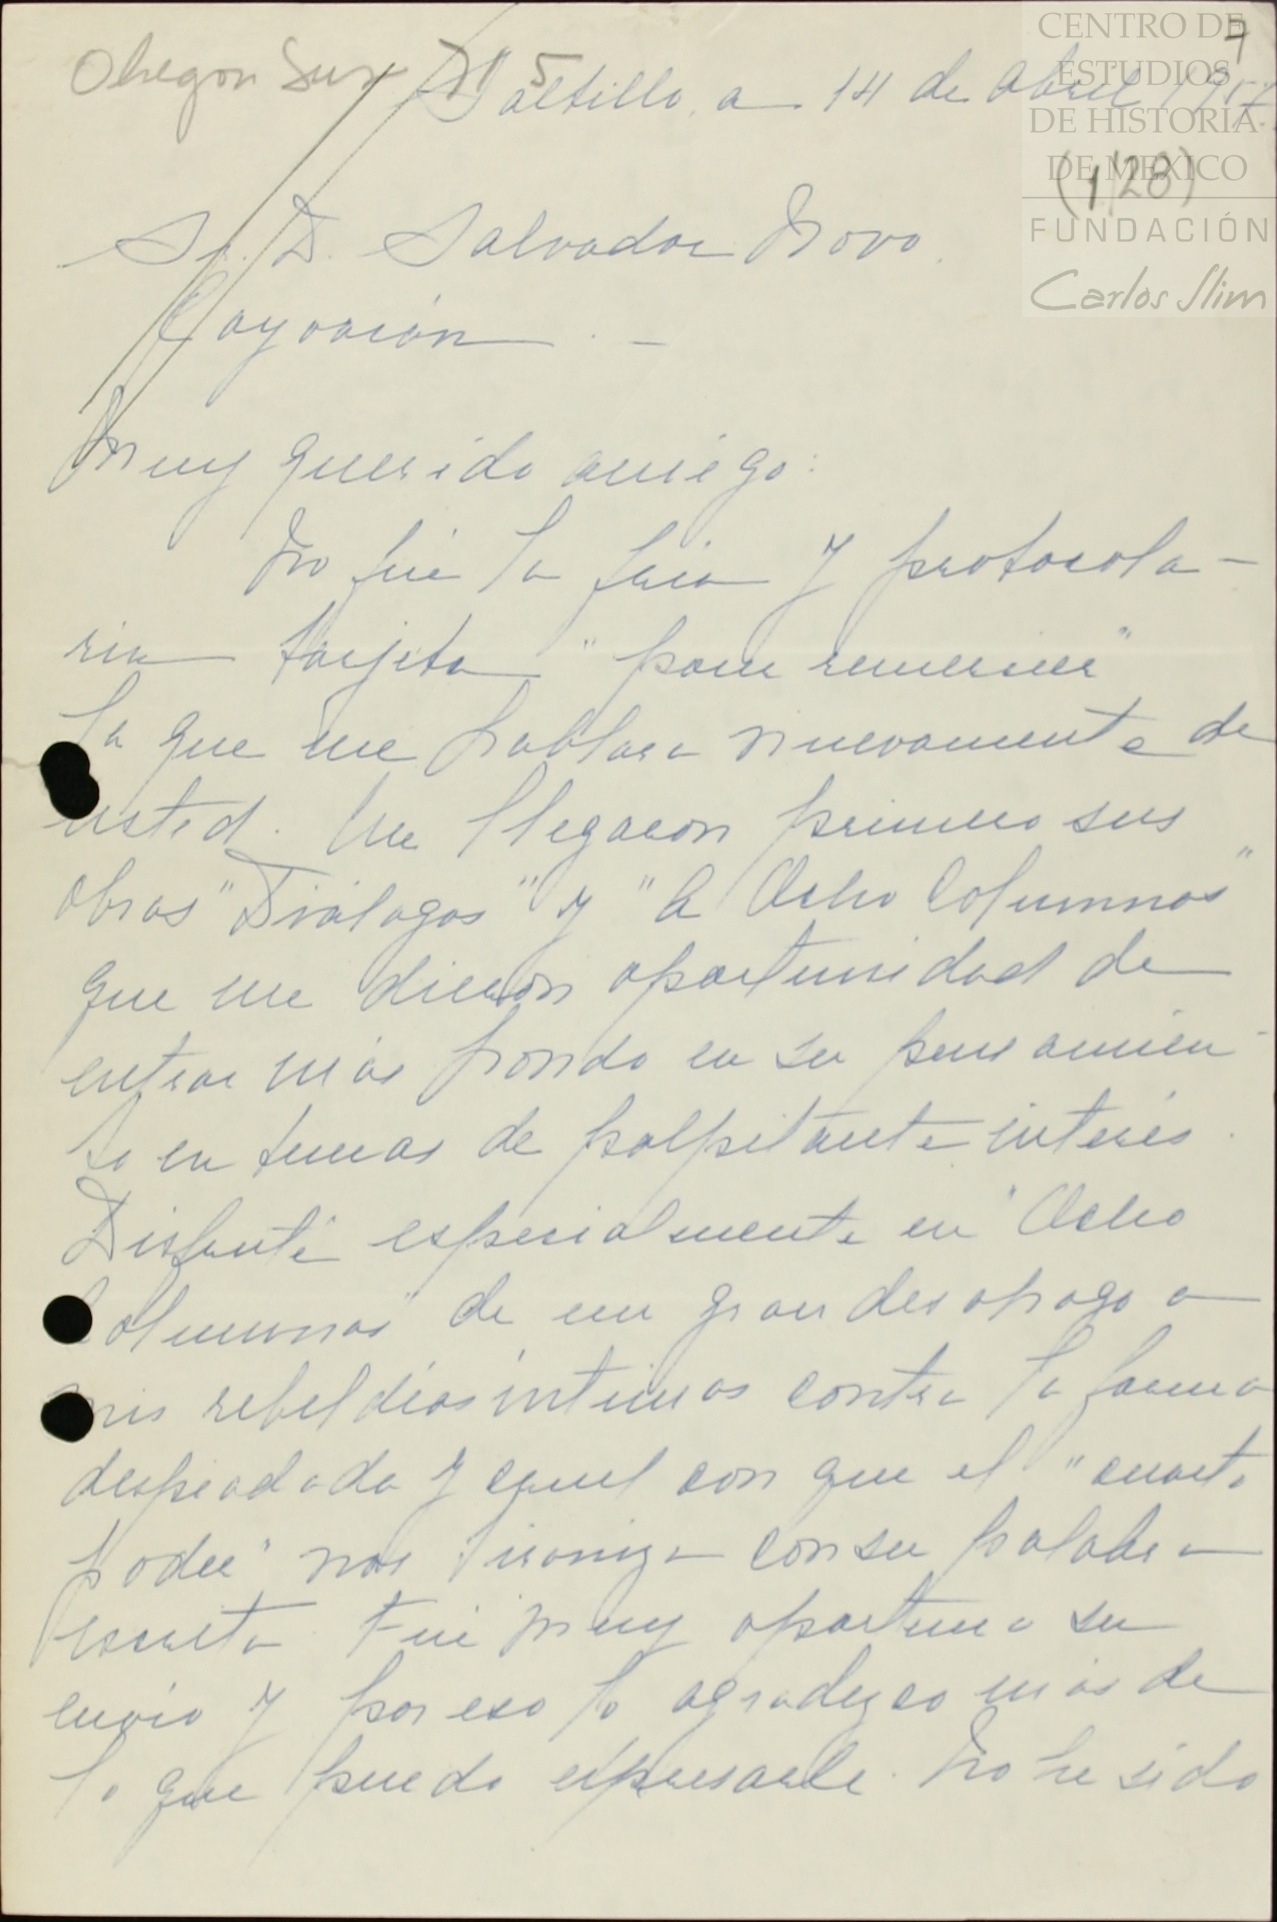 CENTRO DE
ESTUDIOS
DE HISTORIA
DE MEXICO
FUNDACIÓN
Carlos Slim
7
Obregon Sur 715
Saltillo, a 14 de Abril
(1/28)
Sr. D. Salvador Novo.
Coyoacán. —
Muy querido amigo:
No fue la fria y protocola-
ria tarjeta "pour remercier"
la que me hablara nuevamente de
usted. Me llegaron primero sus
obras "Diálogos" y "A Ocho Columnas"
que me dieron oportunidad de
entrar más hondo en su pensamien-
to en temas de palpitante interés.
Disfruté especialmente en "Ocho
Columnas" de un gran desahogo a
mis rebeldías intimas contra la forma
despiadada y cruel con que el "cuarto
poder" nos tiraniza con su palabra
escrita. Fué muy oportuno su
envio y por eso lo agradezco más de
lo que puedo expresarle. No he sido